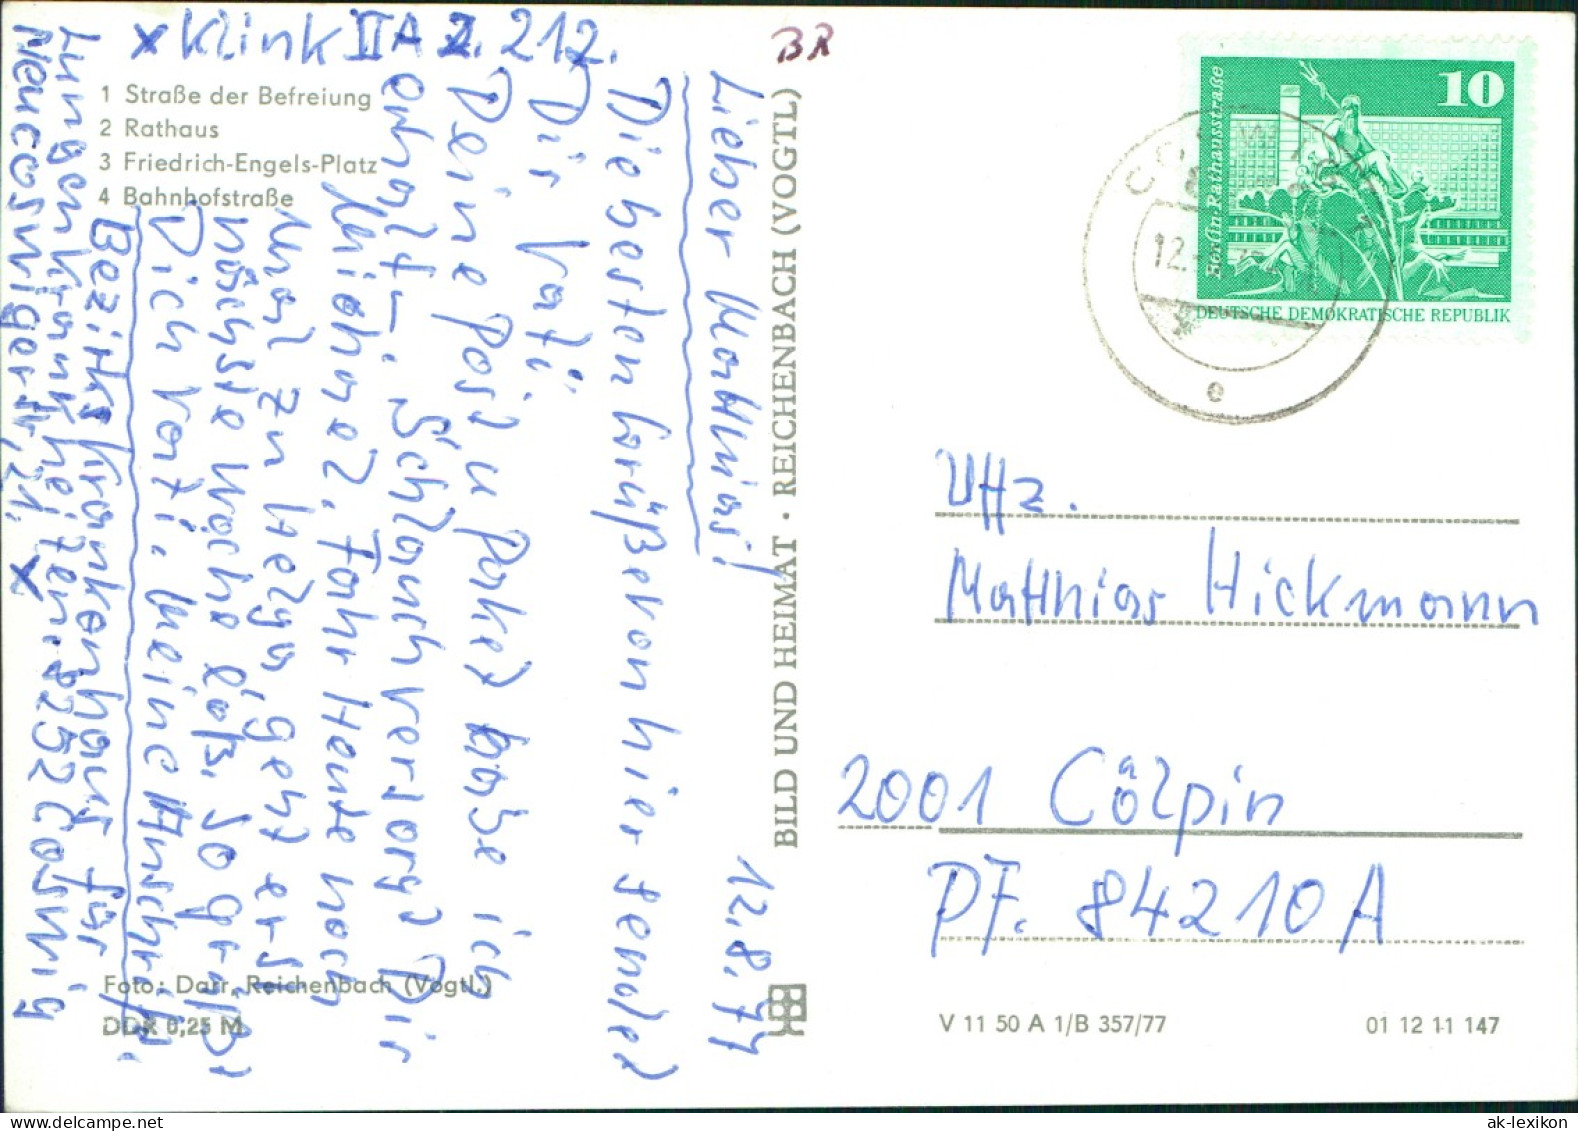 x Klink II A Z. 212.
BR
1 Straße der Befreiung
2 Rathaus
3 Friedrich-Engels-Platz
4 Bahnhofstraße
12.8.77
Lieber Matthias!
Die besten Grüße von hier sendet
Dir Vati.
Deine Post u Paket habe ich
erhalt–. Schlauch versorgt Dir
Michael. Fahr Heute noch
mal zu Helga, geht erst
nächste Woche los. So grüßt
Dich Vati. Meine Anschrift.
Bezirkskrankenhaus für
Lungenkrankheiten. 8252 Coswig
Neucoswigerstr. 21. x
Foto: Darr, Reichenbach (Vogtl.)
DDR 0,25 M
BILD UND HEIMAT · REICHENBACH (VOGTL)
10
Berlin · Rathausstraße
DEUTSCHE DEMOKRATISCHE REPUBLIK
12.
e
Uffz.
Matthias Hickmann
2001 Cölpin
PF. 84210 A
V 11 50 A 1/B 357/77
01 12 11 147
ak-lexikon